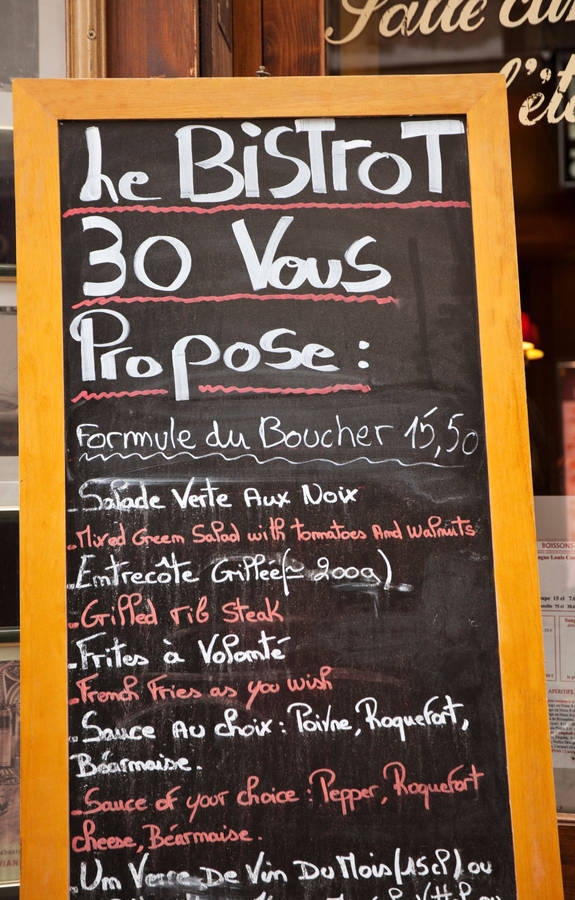 Salle cli
l'ét
Le BiSTroT
30 VouS
Propose :
Formule du Boucher 15,50
- Salade Verte Aux Noix
- Mixed Green Salad with tomatoes And Walnuts
- Entrecôte Grillée (≃ 200g)
- Grilled rib Steak
- Frites à Volonté
- French Fries as you wish
- Sauce Au choix : Poivre, Roquefort,
Béarnaise.
- Sauce of your choice : Pepper, Roquefort
cheese, Béarnaise.
- Un Verre De Vin Du Mois (15cl) ou
BOISSONS
APERITIFS
VIAN